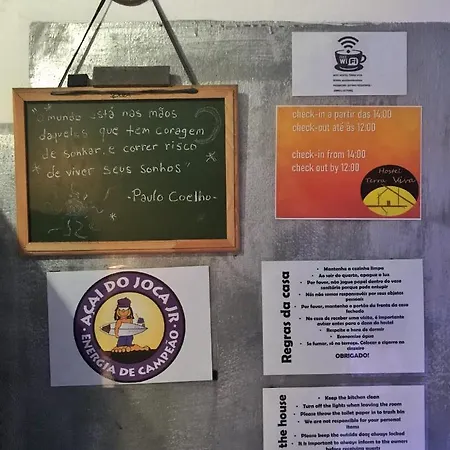 "O mundo está nas mãos
daqueles que tem coragem
de sonhar, e correr risco
de viver seus sonhos"
-Paulo Coelho-
WiFi
check-in a partir das 14:00
check-out até às 12:00
check-in from 14:00
check out by 12:00
Hostel
Terra Viva
AÇAI DO JOCA JR
ENERGIA DE CAMPEÃO
Regras da casa
• Mantenha a cozinha limpa
• Ao sair do quarto, apague a luz
• Por favor, não jogue papel dentro do vaso
sanitário porque pode entupir
• Nós não somos responsáveis por seus objetos
pessoais
• Por favor, mantenha o portão da frente da casa
fechado
• No caso de receber uma visita, é importante
avisar antes para o dono do hostel
• Respeite a hora de dormir
• Economize água
• Se fumar, só no terraço. Colocar o cigarro no
cinzeiro
OBRIGADO!
the house
• Keep the kitchen clean
• Turn off the lights when leaving the room
• Please throw the toilet paper in to trash bin
• We are not responsible for your personal
items
• Please keep the outside door always locked
• It is important to always inform to the owners
before receiving guests